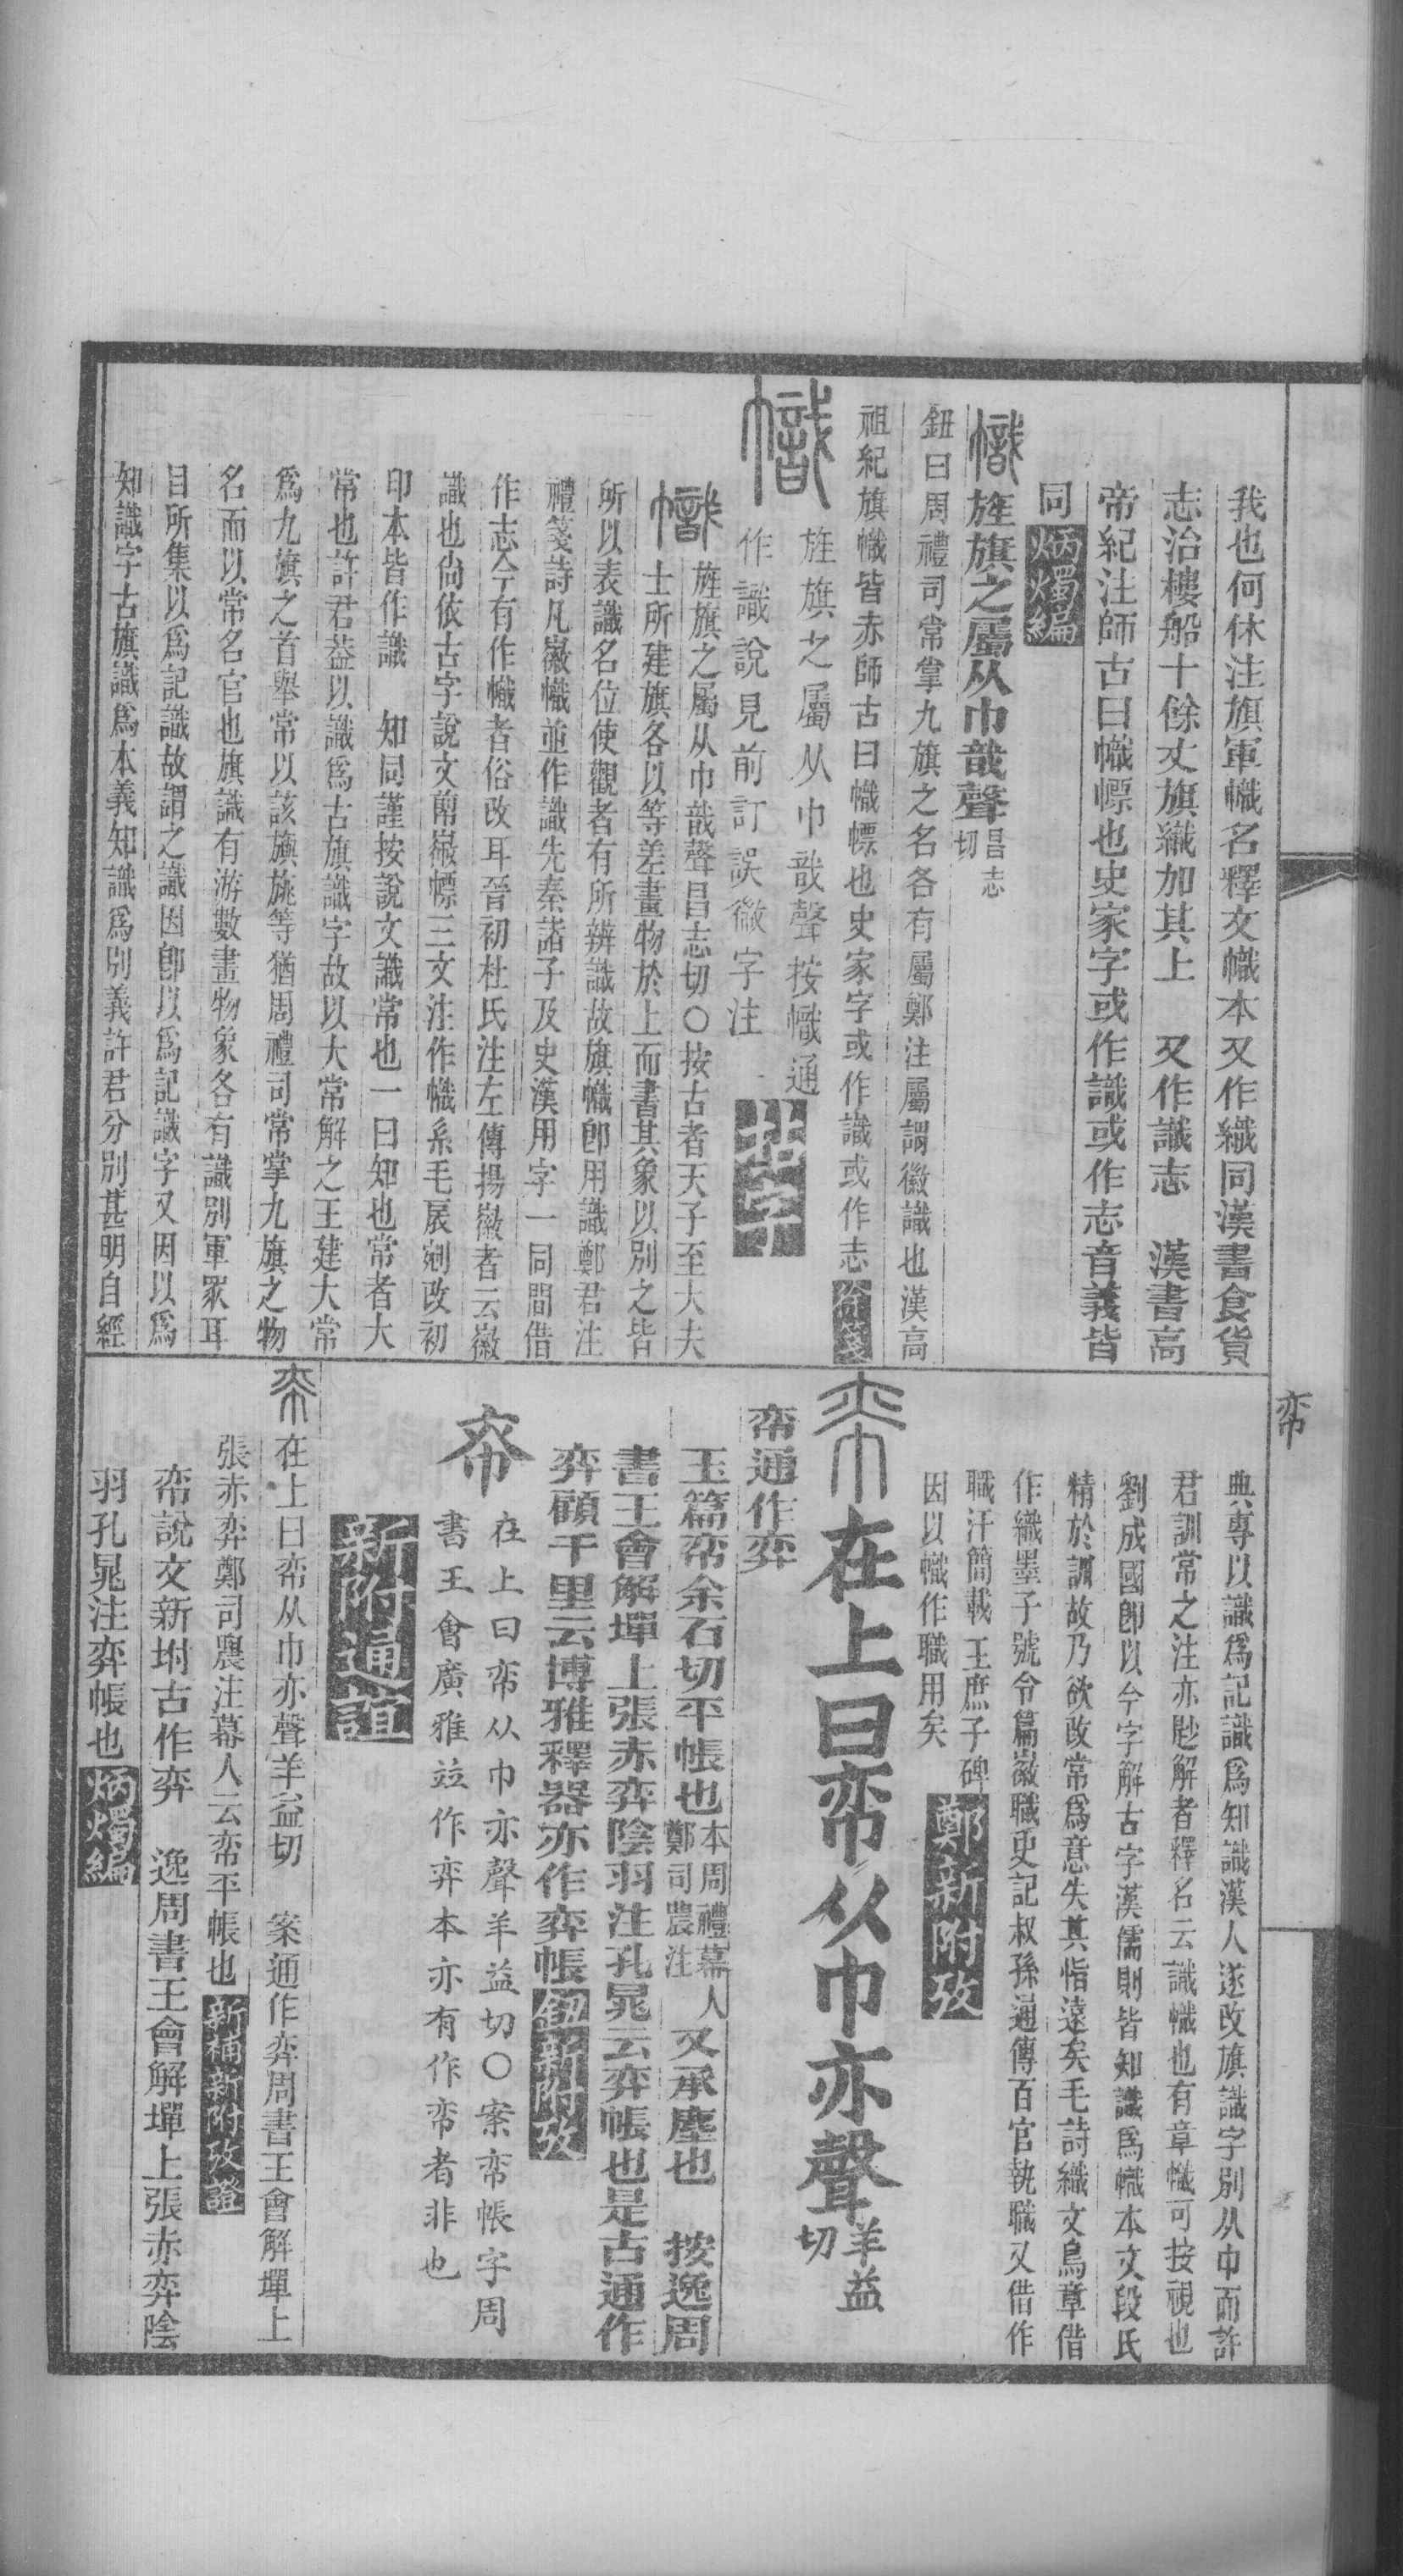 我也何休注旗軍幟名釋文幟本又作織同漢書食貨
志治樓船十餘丈旗織加其上　又作識志　漢書高
帝紀注師古曰幟幖也史家字或作識或作志音義皆
同炳燭編
幟旌旗之屬从巾戠聲昌志切
鈕曰周禮司常掌九旗之名各有屬鄭注屬謂徽識也漢高
祖紀旗幟皆赤師古曰幟幖也史家字或作識或作志
幟
旌旗之屬从巾戠聲按幟通
作識說見前訂誤微字注
幟旌旗之屬从巾戠聲昌志切○按古者天子至大夫
士所建旗各以等差畫物於上而書其象以別之皆
所以表識名位使觀者有所辨識故旗幟卽用識鄭君注
禮箋詩凡徽幟並作識先秦諸子及史漢用字一同間借
作志今有作幟者俗改耳晉初杜氏注左傳揚徽者云徽
識也尙依古字說文萷徽幖三文注作幟系毛扆剜改初
印本皆作識　知同謹按說文識常也一曰知也常者大
常也許君葢以識爲古旗識字故以大常解之王建大常
爲九旗之首舉常以該旟旐等猶周禮司常掌九旗之物
名而以常名官也旗識有游數畫物象各有識別軍眾耳
目所集以爲記識故謂之識因卽以爲記識字又因以爲
知識字古旗識爲本義知識爲別義許君分別甚明自經
帟
典專以識爲記識爲知識漢人遂改旗識字別从巾而許
君訓常之注亦尟解者釋名云識幟也有章幟可按視也
劉成國卽以今字解古字漢儒則皆知識爲幟本文段氏
精於訓故乃欲改常爲意失其恉遠矣毛詩織文鳥章借
作織墨子號令篇徽職史記叔孫通傳百官執職又借作
職汗簡載王庶子碑
因以幟作職用矣鄭新附攷
帟在上曰帟从巾亦聲羊益切
帟通作弈
玉篇帟余石切平帳也本周禮幕人鄭司農注又承塵也　按逸周
書王會解墠上張赤弈陰羽注孔晁云弈帳也是古通作
弈顧千里云博雅釋器亦作弈帳鈕新附攷
帟
在上曰帟从巾亦聲羊益切○案帟帳字周
書王會廣雅竝作弈本亦有作帟者非也
新附通誼
帟在上曰帟从巾亦聲羊益切　案通作弈周書王會解墠上
張赤弈鄭司農注幕人云帟平帳也新補新附攷證
帟說文新坿古作弈　逸周書王會解墠上張赤弈陰
羽孔晁注弈帳也炳燭編